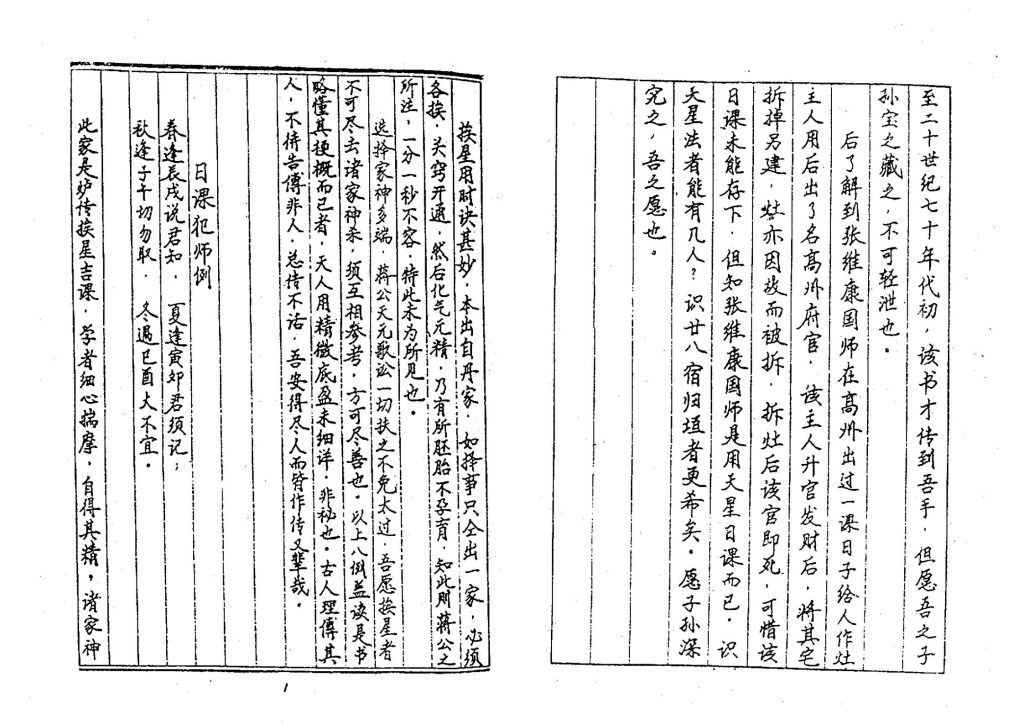 至二十世纪七十年代初，该书才传到吾手，但愿吾之子
孙宝之藏之，不可轻泄也。
后了解到张维康国师在高州出过一课日子给人作灶
主人用后出了名高州府官，该主人升官发财后，将其宅
拆掉另建，灶亦因故而被拆，拆灶后该官即死，可惜该
日课未能存下，但知张维康国师是用天星日课而已，识
天星法者能有几人？识廿八宿归垣者更希矣。愿子孙深
究之，吾之愿也。
挨星用时诀甚妙，本出自丹家，如择事只仝出一家，必须
各挨，关窍开通，然后化气元精，乃有所胚胎不孕育，知此则蒋公之
所注，一分一秒不容，特此未为所见也。
选择家神多端，蒋公天元歌讼一切扶之不免太过，吾愿挨星者
不可尽去诸家神杀，须互相参考，方可尽善也。以上八例益读是书
略懂其梗概而已者，天人用精微底盈未细详，非秘也。古人理傅其
人，不待告傅非人，总传不话，吾安得尽人而皆作传又辈哉。
日课犯师例
春逢辰戌说君知，夏逢寅卯君须记；
秋逢子午切勿取，冬遇巳酉大不宜。
此家是妒传挨星吉课，学者细心揣摩，自得其精，诸家神
1